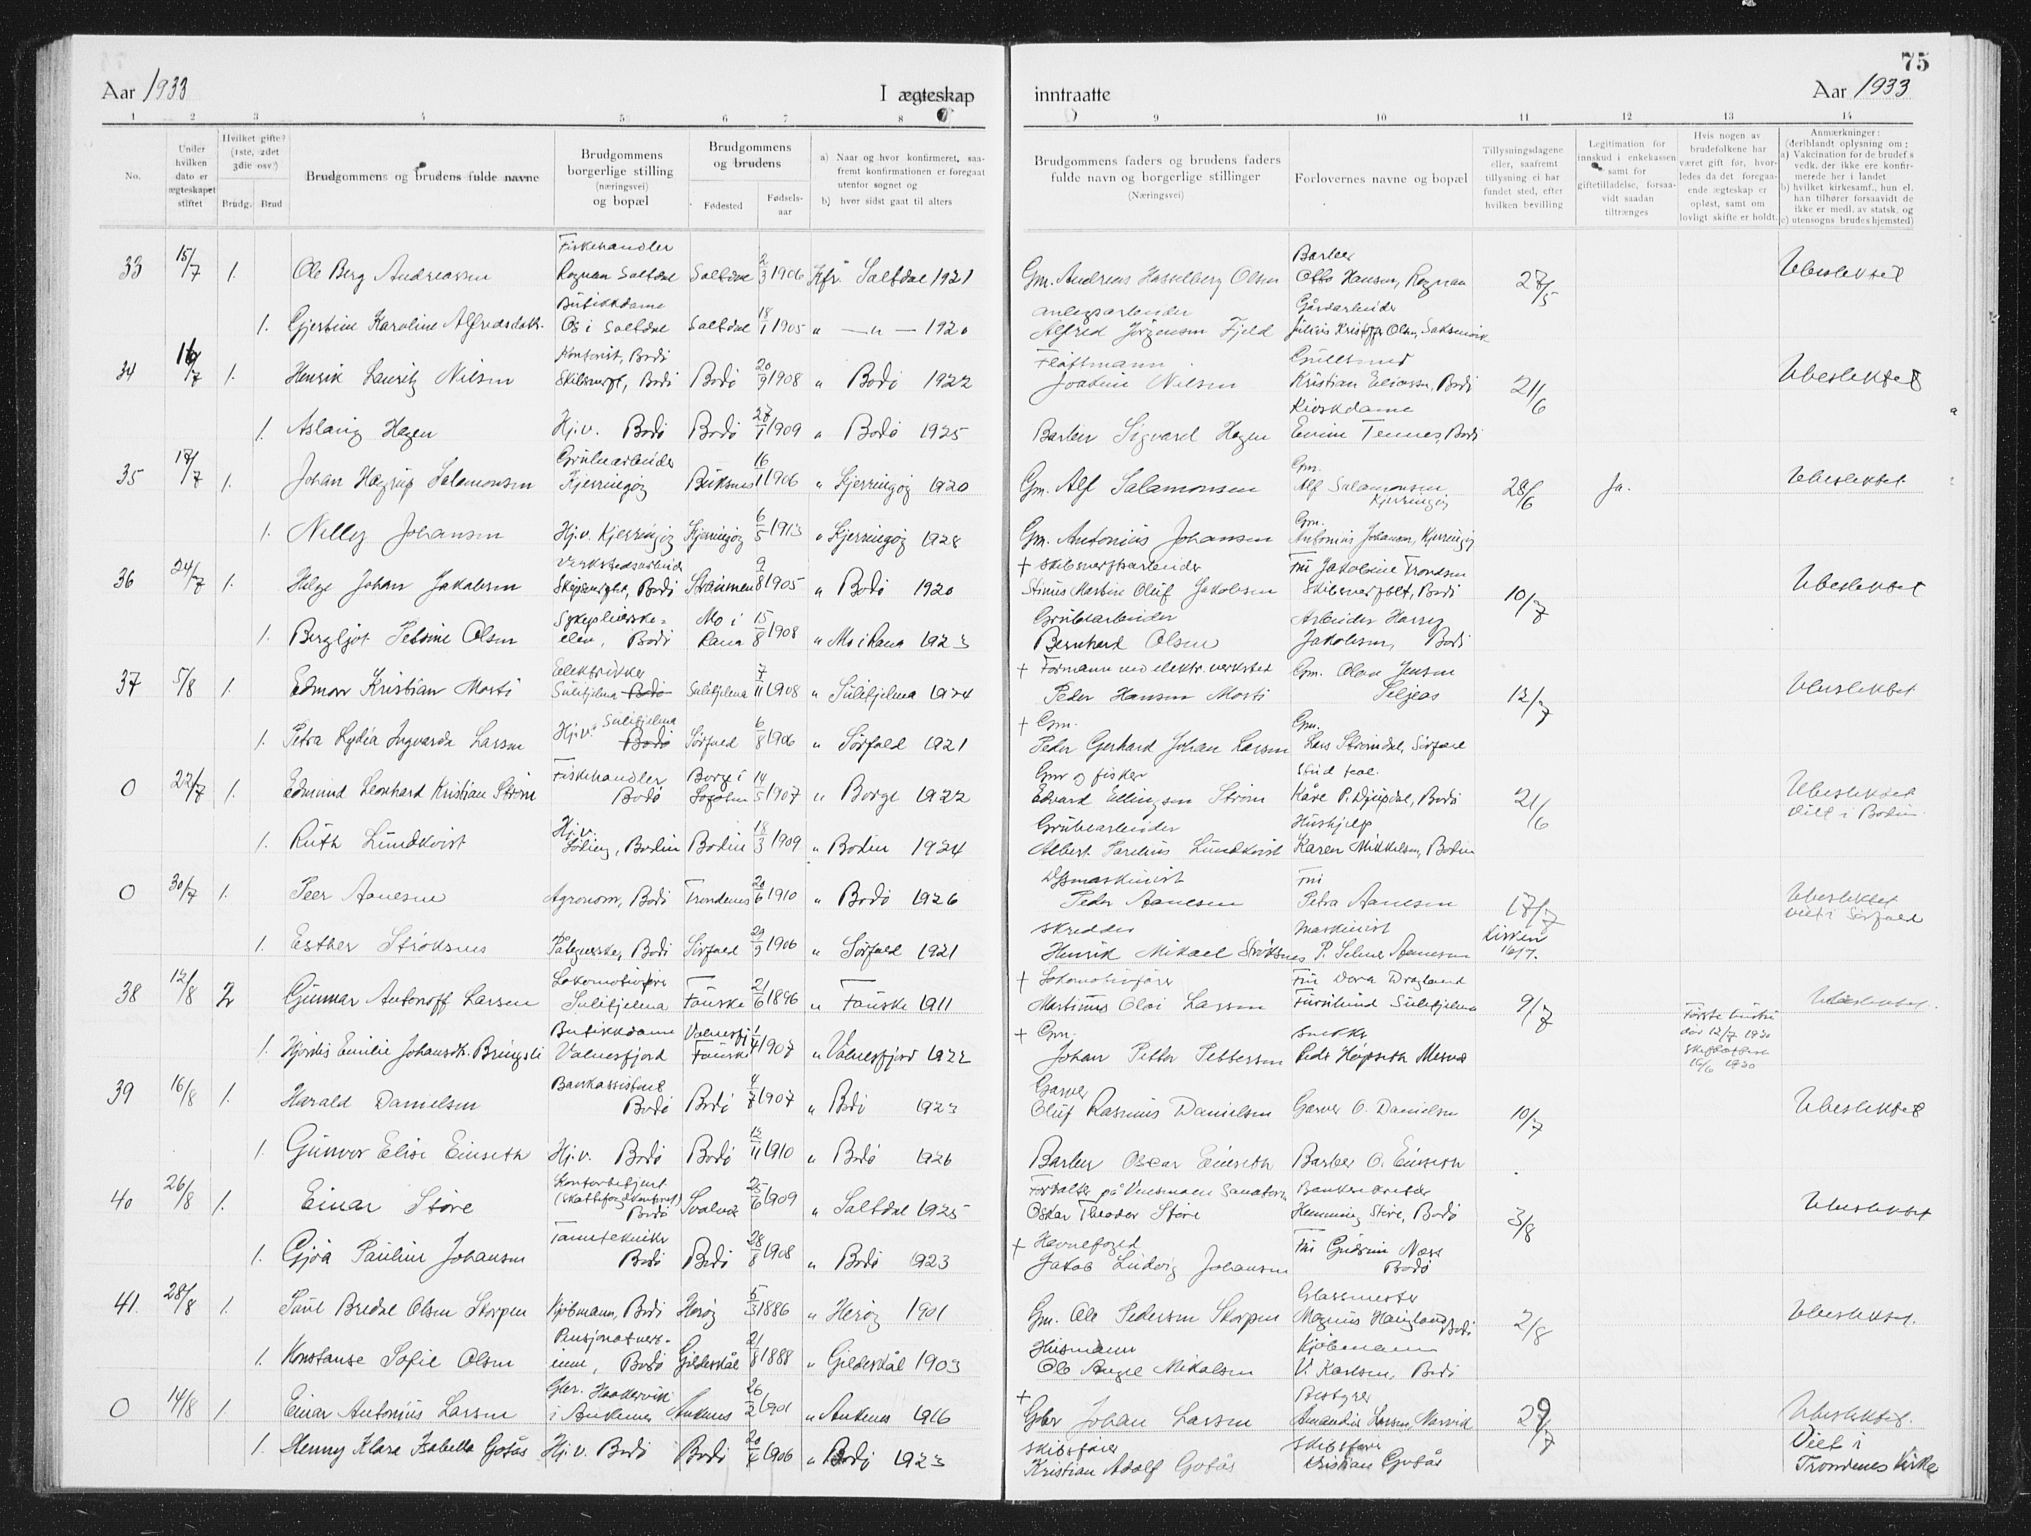 75
Aar 1933
I ægteskap
inntraatte
Aar 1933
1 2 3 4 5 6 7 8 9 10 11 12 13 14
No.
Under hvilken dato er ægteskapet stiftet
Hvilket gifte? (1ste, 2det 3die osv.)
Brudg. Brud
Brudgommens og brudens fulde navne
Brudgommens borgerlige stilling (næringsvei) og bopæl
Brudgommens og brudens
Fødested
Fødsels-aar
a) Naar og hvor konfirmeret, saafremt konfirmationen er foregaat utenfor sognet og
b) hvor sidst gaat til alters
Brudgommens faders og brudens faders fulde navn og borgerlige stillinger
(Næringsvei)
Forlovernes navne og bopæl
Tillysningsdagene eller, saafremt tillysning ei har fundet sted, efter hvilken bevilling
Legitimation for innskud i enkekassen samt for giftetilladelse, forsaavidt saadan tiltrænges
Hvis nogen av brudefolkene har været gift før, hvorledes da det foregaaende ægteskap er opløst, samt om lovligt skifte er holdt.
Anmærkninger: (deriblandt oplysning om:
a) Vakcination for de brudefs vedk. der ikke ere konfirmerede her i landet
b) hvilket kirkesamf., hun el. han tilhører forsaavidt de ikke er medl. av statsk. og
c) utensogns brudes hjemsted)
Fiskehandler Barber
33 15/7 1. Ole Berg Andreassen Rognan Saltdal Saltdal 2/3 1906 Kfr. Saltdal 1921 Gm. Andreas Hasselberg Olsen Otto Hansen, Rognan 27/5 Ubeslektet
Butikkdame Anlegsarbeider Gårdarbeider
1. Gjertine Karoline Alfredsdatt. Os i Saltdal Saltdal 18/1 1905 „ — „ — 1920 Alfred Jørgensen Fjeld Julius Kristoffer Olsen, Saksenvik
Kontorist, Bodø Fløttmann Gullsmed
34 16/7 1. Henrik Lauritz Nilsen Skibsverft, Bodø Bodø 20/9 1908 „ Bodø 1922 Joakim Nilsen Kristian Eliassen, Bodø 21/6 Ubeslektet
Kioskdame
1. Aslaug Hagen Hj.v. Bodø Bodø 27/1 1909 „ Bodø 1925 Barber Sigvard Hagen Emine Tennes, Bodø
Grubearbeider Gm.
35 17/7 1. Johan Hagrup Salamonsen Kjerringøy Buksnes 16/1 1906 „ Kjerringøy 1920 Gm. Alf Salamonsen Alf Salamonsen Kjerringøy 28/6 Ja. Ubeslektet
Gm.
1. Nelly Johansen Hj.v. Kjerringøy Kjerringøy 6/5 1913 „ Kjerringøy 1928 Gm. Antonius Johansen Antonius Johansen, Kjerringøy
Verkstedsarbeider † Skibsverftsarbeider Fru Jakobine Trondsen
36 24/7 1. Helge Johan Jakobsen Skipsverftet, Bodø Straumen 9/8 1905 „ Bodø 1920 Stinus Martin Oluf Jakobsen Skibsverftet, Bodø 10/7 Ubeslektet
Sykepleierske- Mo i Grubearbeider Arbeider Harry
1. Bergljot Petrine Olsen elev, Bodø Rana 15/8 1908 „ Mo i Rana 1923 Bernhard Olsen Jakobsen, Bodø
Elektrikker † Formann ved elektr. verksted Gm. Olom Jensen
37 5/8 1. Edmon Kristian Morti Sulitjelma Bodø Sulitjelma 7/11 1908 „ Sulitjelma 1924 Peder Hansen Morti Seljeås 12/7 Ubeslektet
Sulitjelma † Gm. Gm.
1. Petra Lydia Ingvarda Larsen Hj.v. Bodø Sørfold 6/8 1906 „ Sørfold 1921 Peder Gerhard Johan Larsen Lars Strømdal, Sørfold
Fiskehandler Borge i Gm og fisker Stud teol.
0 22/7 1. Edmund Leonhard Kristian Strøm Bodø Lofoten 14/5 1907 „ Borge 1922 Edvard Ellingsen Strøm Kåre P. Djupdal, Bodø 21/6 Ubeslektet Viet i Bodin
Hj.v. Grubearbeider Hushjelp
1. Ruth Lundkvist Løding, Bodin Bodin 18/3 1909 „ Bodin 1924 Albert Parelius Lundkvist Karen Mikkelsen, Bodin
Dpsmaskinist Fru
0 30/7 1. Peer Aanesen Agronom, Bodø Trondenes 20/6 1910 „ Bodø 1926 Peder Aanesen Petra Aanesen 17/7 Ubeslektet Viet i Sørfold
Skredder Maskinist Kirken
1. Esther Strøksnes Bodø Sørfold 29/9 1906 „ Sørfold 1921 Henrik Mikael Strøksnes P. Selmer Aanesen 16/7.
Lokomotivfører † Lokomotivfører Fru Dora Dragland
38 12/8 2 Gunnar Antonoff Larsen Sulitjelma Fauske 21/6 1896 „ Fauske 1911 Martinus Olai Larsen Furulund Sulitjelma 9/7 Første hustru død 12/7 1930 16/6 1930 Ubeslektet.
Butikkdame Valnesfj. † Gm. Snekker
1. Hjørdis Emilie Johansdt. Bringsli Valnesfjord Fauske 1/4 1907 „ Valnesfjord 1922 Johan Petter Pettersen Peder Høgseth Mesna
Bankassistent Garver
39 16/8 1. Harald Danielsen Bodø Bodø 4/7 1907 „ Bodø 1923 Oluf Rasmus Danielsen Garver O. Danielsen 10/7 Ubeslektet
1. Gunvor Elise Einseth Hj.v. Bodø Bodø 12/11 1910 „ Bodø 1926 Barber Oscar Einseth Barber O. Einseth
Kontorbetjent (skattefogdkontoret) Forvalter på Vensmoen Sanatorium Banksekretær
40 26/8 1. Einar Støre Bodø Svolvær 25/6 1909 „ Saltdal 1925 Oskar Theodor Støre Hemming Støre, Bodø 3/8 Ubeslektet
Tanntekniker † Havnefoged Fru Gudrun Næss
1. Gjøa Pauline Johansen Bodø Bodø 28/8 1908 „ Bodø 1923 Jakob Ludvig Johansen Bodø
Glassmester
41. 28/8 1. Paul Bredal Olsen Skorpen Kjøbmann, Bodø Herøy 5/3 1886 „ Herøy 1901 Gm. Ole Pedersen Skorpen Magnus Haugland Bodø 2/8 Ubeslektet.
Pensjonatver- Husmann Kjøbmann
1. Konstanse Sofie Olsen inne, Bodø Gildeskål 21/8 1888 „ Gildeskål 1903 Ole Angel Mikalsen V. Karlsen, Bodø
Gbr. Haakvik † Bestyrer
0 14/8 1. Einar Antonius Larsen i Ankenes Ankenes 26/2 1901 „ Ankenes 1916 Gbr Johan Larsen Amandus Larsen, Narvik 29/7 Ubeslektet.
Skibsfører Skibsfører Viet i
1. Henny Klara Isabella Gofås Hj.v. Bodø Bodø 20/4 1906 „ Bodø 1923 Kristian Adolf Gofås Kristian Gofås Trondenes kirke